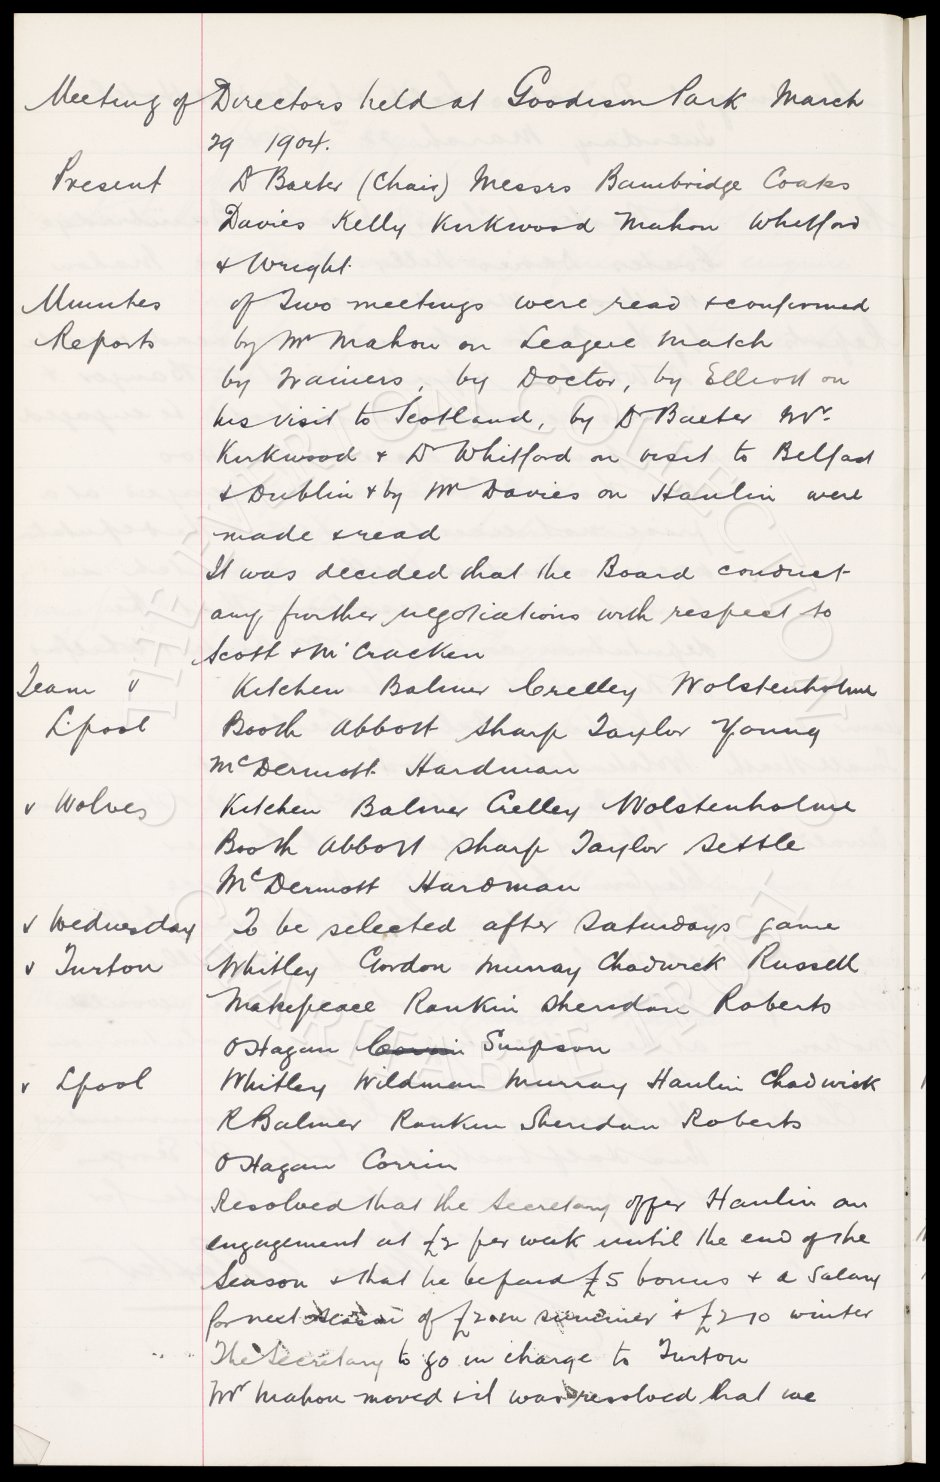 Meeting of Directors held at Goodison Park March
29 1904.
Present Dr Baxter (Chair) Messrs Bambridge Coates
Davies Kelly Kirkwood Mahon Whitford
& Wright.
Minutes of Two meetings were read & confirmed
Reports by Mr Mahon on League match
by Trainers, by Doctor, by Elliott on
his visit to Scotland, by Dr Baxter Mr.
Kirkwood & Dr Whitford on visit to Belfast
& Dublin & by Mr Davies on Hanlin were
made & read
It was decided that the Board conduct
any further negotiations with respect to
Scott & McCracken
Team v Kitchen Balmer Crelley Wolstenholme
L'pool Booth Abbott Sharp Taylor Young
McDermott Hardman
v Wolves Kitchen Balmer Crelley Wolstenholme
Booth Abbott Sharp Taylor Settle
McDermott Hardman
v Wednesday To be selected after Saturdays game
v Turton Whitley Gordon Murray Chadwick Russell
Makepeace Rankin Sheridan Roberts
OHagan Corrin Simpson
v Lpool Whitley Wildman Murray Hanlin Chadwick
R Balmer Rankin Sheridan Roberts
OHagan Corrin
Resolved that the Secretary offer Hanlin an
engagement at £2 per week until the end of the
Season & that he be paid £5 bonus & a Salary
for next season of £2 in summer & £2 10 winter
The Secretary to go in charge to Turton
Mr Mahon moved & it was resolved that we